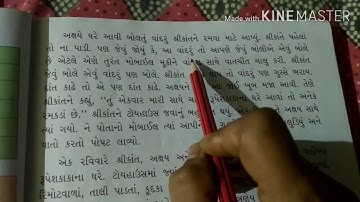 Made with KINEMASTER
અક્ષયે ઘરે આવી બોલતું વાંદરું શ્રીકાંતને રમવા માટે આપ્યું. શ્રીકાંતે પહેલાં
તો ના પાડી. પણ જેવું જોયું કે, આ વાંદરું તો આપણે જેવું બોલીએ એવું બોલે
છે એટલે એણે તુરંત મોબાઈલ મૂકીને વાંદરા સાથે વાતચીત ચાલુ કરી. શ્રીકાંત
જેવું બોલે એવું વાંદરું પણ બોલે. શ્રીકાંત થાય તો વાંદરું પણ ગુસ્સે ભરાય.
દાંત કાઢે તો એ પણ દાંત કાઢે. અક્ષયને આ જોઈ ખૂબ મજા આવી. તેણે
શ્રીકાંતને કહ્યું, "તું એકવાર મારી સાથે ઘરે આવાં તો અનેક
રમકડાં છે." શ્રીકાંતને ટોયહાઉસ જવાનું મન અક્ષય સાથે
ત્યાં ગયો. ને પોતાનો મોબાઈલ ત્યાં આપીને અને
વાતો કરતો પોપટ લાવ્યો.
એક રવિવારે શ્રીકાંત, અક્ષય અને
રૂપેશકાકાના ઘરે. ટોયહાઉસમાં જ્યાં
રિમોટવાળાં, તાલી પાડતાં, કૂદકા